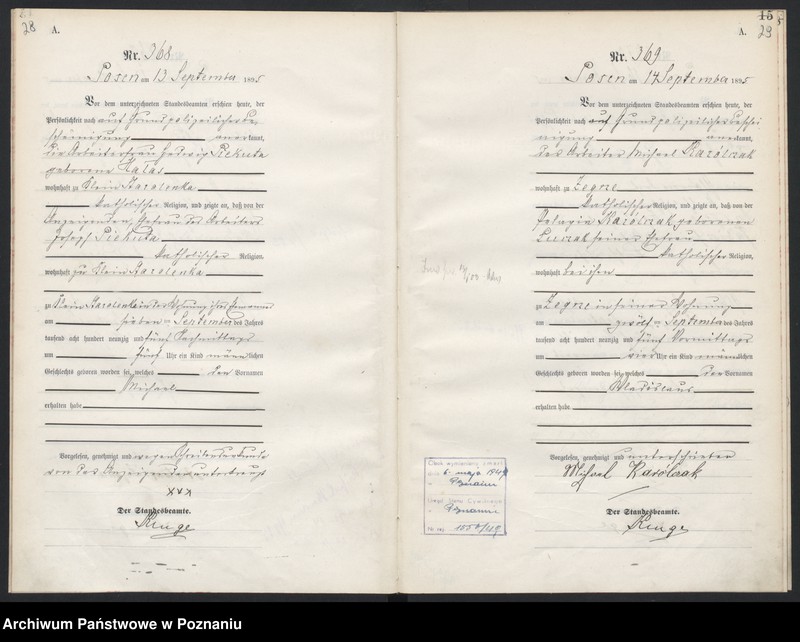 28
A.
Nr. 368
Posen am 13 September 1895
Vor dem unterzeichneten Standesbeamten erschien heute, der
Persönlichkeit nach auf Grund polizeilicher Be-
scheinigung anerkannt,
die Arbeiterfrau Hedwig Piekuta
geborene
wohnhaft zu Klein Starolenka
katholischer Religion, und zeigte an, daß von der
Anzeigenden, Ehefrau des Arbeiters
Joseph Piekuta
katholischer Religion
wohnhaft zu Klein Starolenka
zu Klein Starolenka in der Wohnung ihres Ehemannes
am sieben September des Jahres
tausend acht hundert neunzig und fünf Nachmittags
um fünf Uhr ein Kind männlichen
Geschlechts geboren worden sei, welches den Vornamen
Michael
erhalten habe
Vorgelesen, genehmigt und wegen Schreibensunkunde
von der Anzeigenden unterkreuzt
XXX
Der Standesbeamte.
15
29
A.
Nr. 369
Posen am 14 September 1895
Vor dem unterzeichneten Standesbeamten erschien heute, der
Persönlichkeit nach auf Grund polizeilicher Beschei
nigung anerkannt,
der Arbeiter Michael Karólczak
wohnhaft zu Zegrze
katholischer Religion, und zeigte an, daß von der
Pelagia Karólczak geborenen
seiner Ehefrau
katholischer Religion,
wohnhaft bei ihm
zu Zegrze in seiner Wohnung
am zwölf September des Jahres
tausend acht hundert neunzig und fünf Vormittags
um vier Uhr ein Kind männlichen
Geschlechts geboren worden sei, welches den Vornamen
Wladislaus
erhalten habe
Vorgelesen, genehmigt und unterschrieben
Michael Karólczak
Der Standesbeamte.
6. maja
Poznaniu
Urząd Stanu Cywilnego
Poznaniu
Archiwum Państwowe w Poznaniu